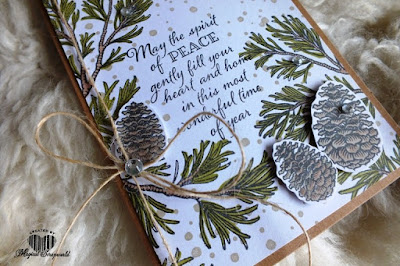 May the spirit
of PEACE
gently fill your
heart and home
in this most
wonderful time
of year.
CREATED BY